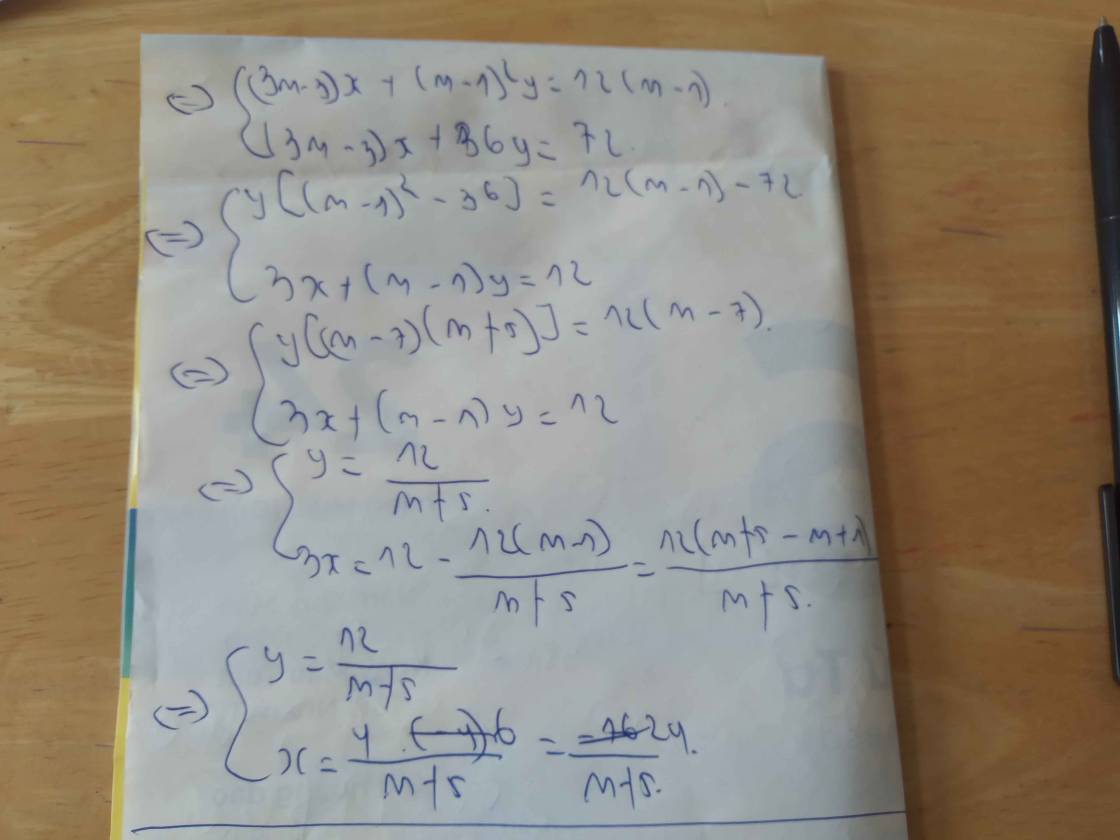 ⇔ { (3m-3)x + (m-1)²y = 12(m-1).
(3m-3)x + 36y = 72.
⇔ { y[(m-1)² - 36] = 12(m-1) - 72
3x + (m-1)y = 12
⇔ { y[(m-7)(m+5)] = 12(m-7).
3x + (m-1)y = 12
⇔ { y = 12/(m+5).
3x = 12 - 12(m-1)/(m+5) = 12(m+5-m+1)/(m+5).
⇔ { y = 12/(m+5)
x = 4.6/(m+5) = 24/(m+5).